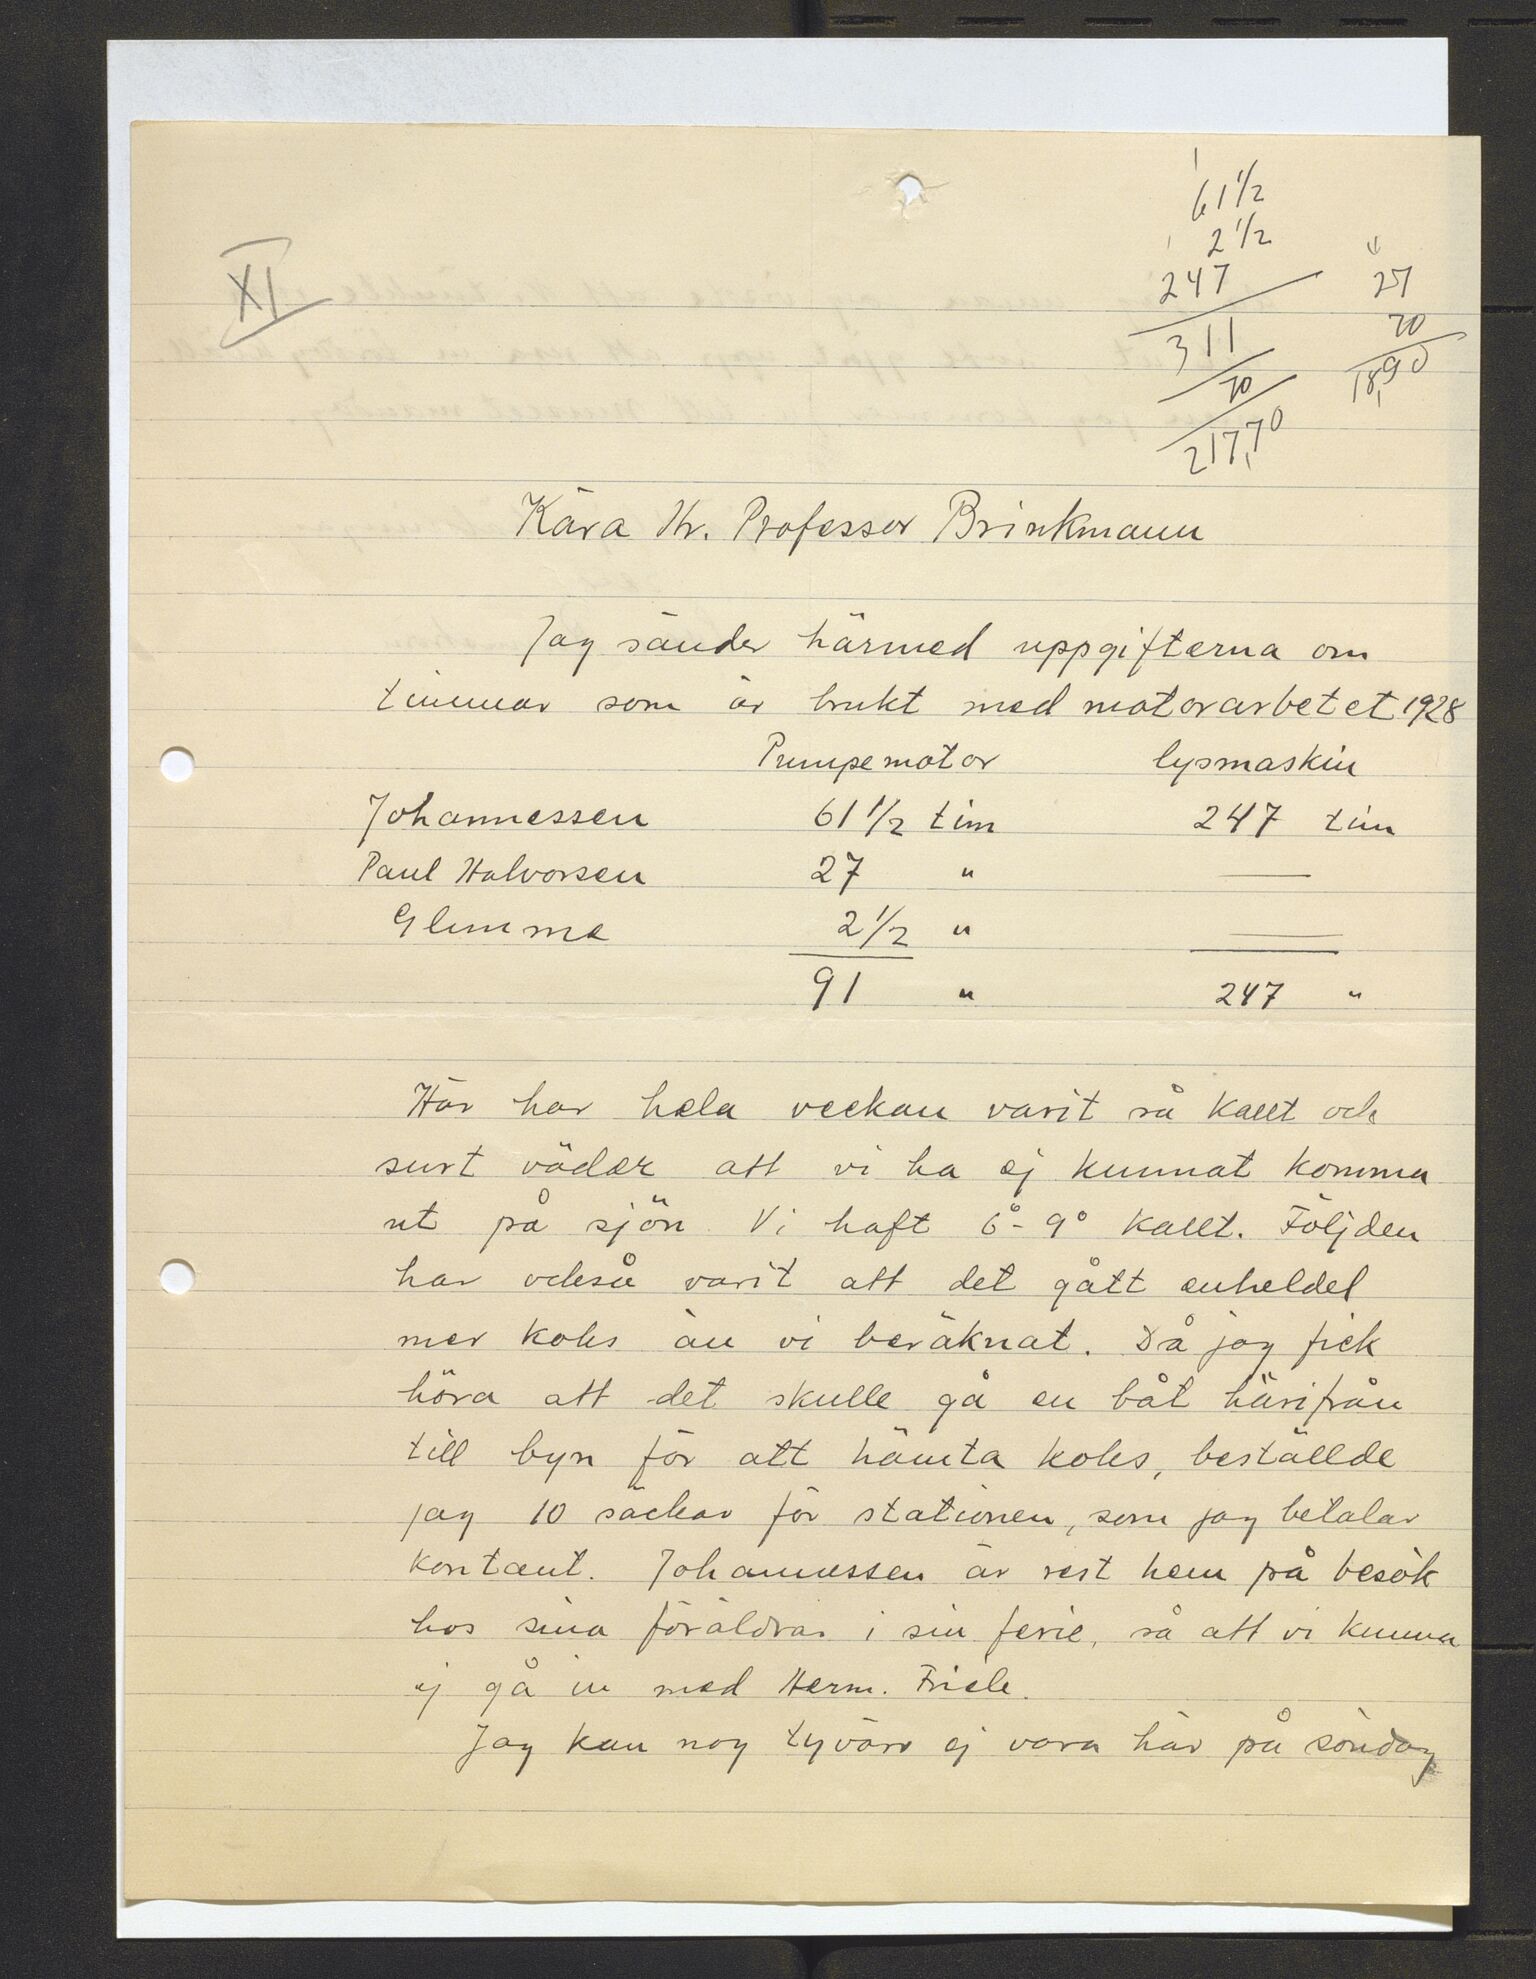 XI
61 1/2
2 1/2
247
311
70
217,70
27
70
18,90
Kära Hr. Professor Brinkmann
Jag sänder härmed uppgifterna om
timmar som är brukt med motorarbetet 1928
Pumpemotor lysmaskin
Johannessen 61 1/2 tim 247 tim
Paul Halvorsen 27 " —
Glimme 2 1/2 " —
91 " 247 "
Här har hela veckan varit så kallt och
surt väder att vi ha ej kunnat komma
ut på sjön. Vi haft 6°- 9° kallt. Följden
har också varit att det gått enheldel
mer koks än vi beräknat. Då jag fick
höra att det skulle gå en båt härifrån
till byn för att hämta koks, beställde
jag 10 säckar för stationen, som jag betalar
kontant. Johannessen är rest hem på besök
hos sina föräldrar i sin ferie, så att vi kunna
ej gå in med Herm. Friele.
Jag kan nog tyvärr ej vara här på söndag